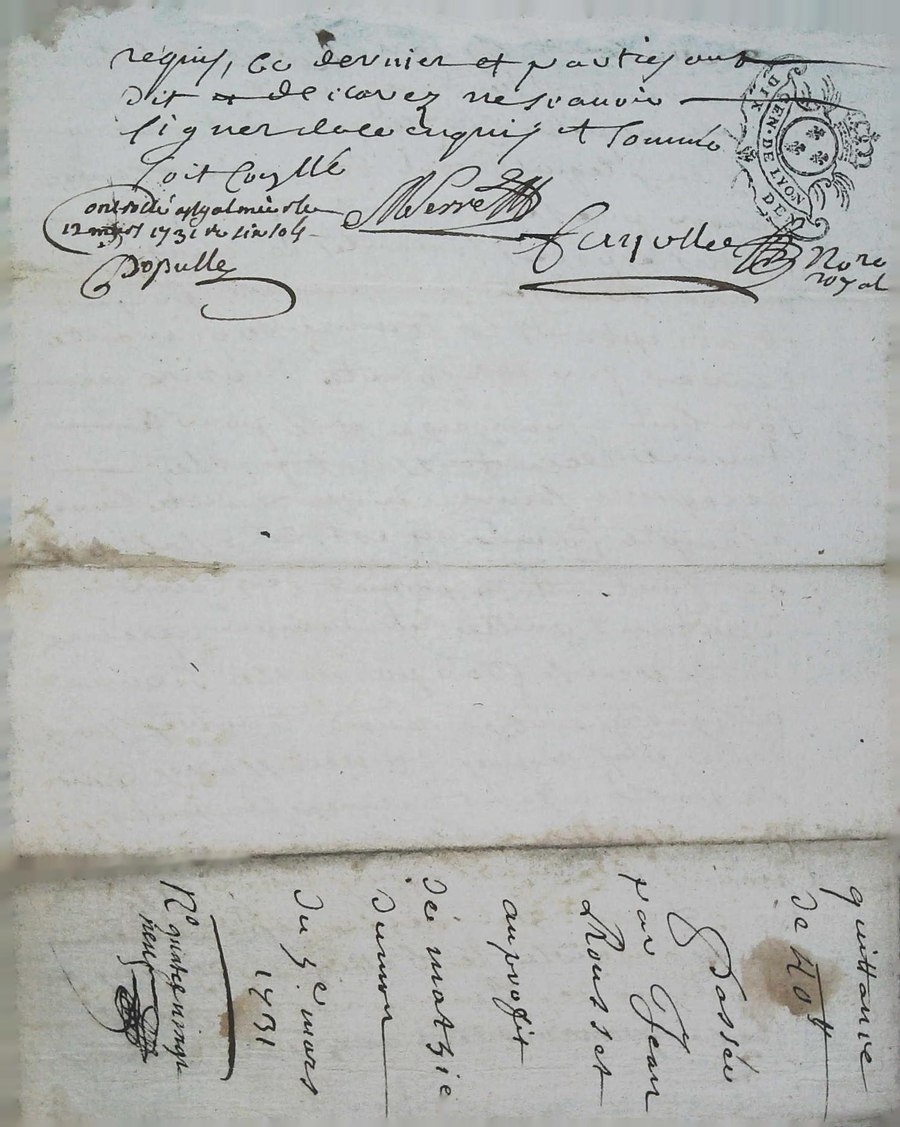 requis, ce dernier et parties ont
dit et declarez ne scavoir
signer de ce enquis et sommé
soit Coyllé
controllé
12 mars 1731
Perret
Cuzolle
Nore
royal
Populle
GEN. DE LYON
DIX DEN
quittance
de 40 #
Passée
par Jean
Rousset
au profit
de mathie
dumon
du 5e mars
1731
No quatre vingt
neuf